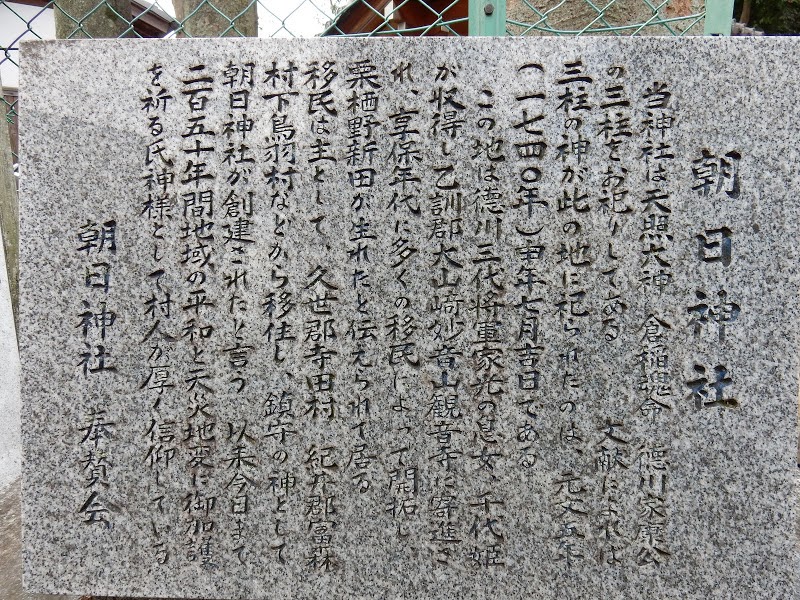 朝日神社
当神社は天照大神 倉稲魂命 徳川家康公
の三柱をお祀りしてある 文献によれば
三柱の神が此の地に祀られたのは、元文五年
(一七四〇年)申年七月吉日である
この地は徳川三代将軍家光の息女、千代姫
が収得し乙訓郡大山崎妙音山観音寺に寄進さ
れ、享保年代に多くの移民によって開拓し
栗栖野新田が生れたと伝えられて居る
移民は主として、久世郡寺田村 紀井郡富森
村下鳥羽村などから移住し、鎮守の神として
朝日神社が創建されたと言う 以来今日まで
二百五十年間地域の平和と天災地変に御加護
を祈る氏神様として村人が厚く信仰している
朝日神社 奉賛会